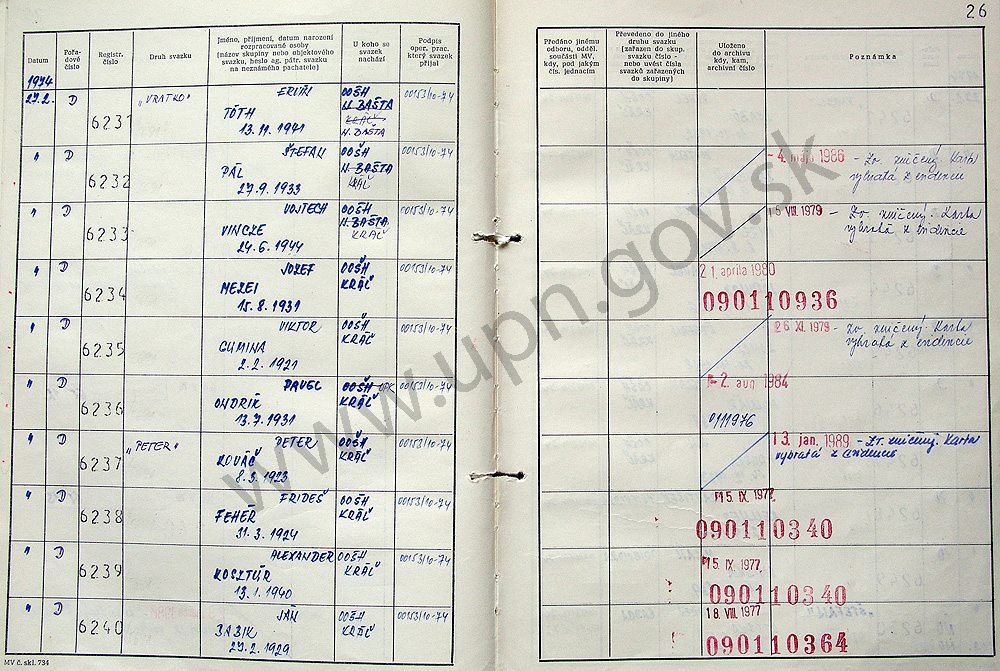 26
Datum
Pořadové číslo
Registr. číslo
Druh svazku
Jméno, příjmení, datum narození rozpracované osoby (název skupiny nebo objektového svazku, heslo ag. pátr. svazku na neznámého pachatele)
U koho se svazek nachází
Podpis oper. prac. který svazek přijal
Předáno jinému odboru, odděl. součásti MV, kdy, pod jakým čís. jednacím
Převedeno do jiného druhu svazku (zařazen do skup. svazku číslo - nebo uvést čísla svazků zařazených do skupiny)
Uloženo do archivu kdy, kam, archivní číslo
Poznámka
1974
27.2. D 6231 „VRATKO"
ERVÍN
TÓTH
13.11.1941
OOŠH
N. BAŠTA
KRÁĽ
N. BAŠTA
00153/10-74
" D 6232
ŠTEFAN
PÁL
27.9.1933
OOŠH
N. BAŠTA
KRÁĽ
00153/10-74
- 4. mája 1986 - Zv. zničený. Karta
vybratá z evidencie
" D 6233
VOJTECH
VINCZE
24.6.1944
OOŠH
N. BAŠTA
KRÁĽ
00153/10-74
15. VIII. 1979 - Zv. zničený. Karta
vybratá z evidencie
" D 6234
JOZEF
MEZEI
15.8.1931
OOŠH
KRÁĽ
00153/10-74
21. apríla 1980
090110936
" D 6235
VIKTOR
GUMINA
2.2.1921
OOŠH
KRÁĽ
00153/10-74
26. XI. 1979 - Zv. zničený. Karta
vybratá z evidencie
" D 6236
PAVEL
ONDRIK
13.7.1931
OOŠH
KRÁĽ
00153/10-74
- 2. aug. 1984
0111976
" D 6237 „PETER"
PETER
KOVÁČ
8.3.1923
OOŠH
KRÁĽ
00153/10-74
13. jan. 1989 - Zv. zničený. Karta
vybratá z evidencie
" D 6238
FRIDEŠ
FEHÉR
31.3.1924
OOŠH
KRÁĽ
00153/10-74
15. IX. 1977
090110340
" D 6239
ALEXANDER
KOSZTÚR
13.1.1940
OOŠH
KRÁĽ
00153/10-74
15. IX. 1977
090110340
" D 6240
JÁN
BABIK
27.2.1929
OOŠH
KRÁĽ
00153/10-74
18. VIII. 1977
090110364
MV č. skl. 734
www.upn.gov.sk